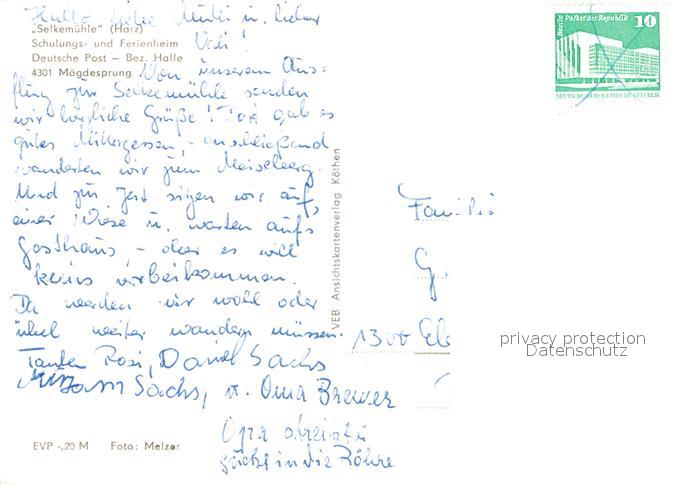 Hallo liebe Mutti u. lieber
Vati!
„Selkemühle" (Harz)
Schulungs- und Ferienheim
Deutsche Post — Bez. Halle
4301 Mägdesprung
Von unserem Aus=
flug zur Selkemühle senden
wir herzliche Grüße! Dort gab es
gutes Mittagessen, anschließend
wanderten wir zum Meiseberg.
Und zur Zeit sitzen wir auf
einer Wiese u. warten aufs
Gasthaus, – aber es will
keins vorbeikommen.
Da werden wir wohl oder
übel weiter wandern müssen.
Tante Rosi, Daniel Sachs
Sachs, u. Oma Brewer
Opa streikte
guckt in die Röhre
EVP -,20 M Foto: Melzer
VEB Ansichtskartenverlag Köthen
Berlin Palast der Republik 10
DEUTSCHE DEMOKRATISCHE REPUBLIK
Familie
G.
1300
privacy protection
Datenschutz